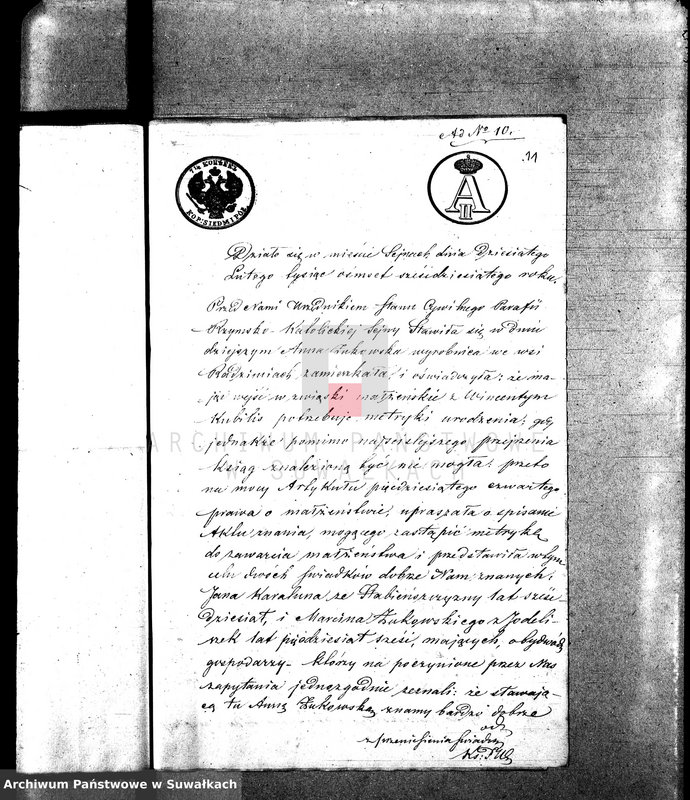 Ad No 10.
11
7½ KOPIEJKI
KOP: SIEDM I PÓŁ
A II
Działo się w mieście Sejnach dnia Dziesiątego
Lutego tysiąc ośmset sześćdziesiątego roku.
Przed Nami Urzędnikiem Stanu Cywilnego Parafii
Rzymsko-Katolickiej Sejny Stawiła się w dniu
dzisiejszym Anna Żukowska wyrobnica we wsi
Radziuciach zamieszkała, i oświadczyła: że ma-
jąc wejść w związki małżeńskie z Wincentym
Kubilis potrzebuje metryki urodzenia; gdy
jednakże pomimo najściślejszego przejrzenia
ksiąg znalezioną być nie mogła; przeto
na mocy Artykułu pięćdziesiątego czwartego
prawa o małżeństwie, upraszała o spisanie
Aktu znania, mogącego zastąpić metrykę
do zawarcia małżeństwa i przedstawiła w tym
celu dwóch świadków dobrze Nam znanych:
Jana Karaluna ze Stabieńszczyzny lat sześć-
dziesiąt, i Marcina Żukowskiego z Jodeli-
szek lat pięćdziesiąt sześć, mających, obydwóch
gospodarzy- którzy na poczynione przez Nas
zapytania jednozgodnie zeznali: że stawają-
cą tu Annę Żukowską znamy bardzo dobrze
od
ARCHIWUM PAŃSTWOWE
W SUWAŁKACH
Archiwum Państwowe w Suwałkach